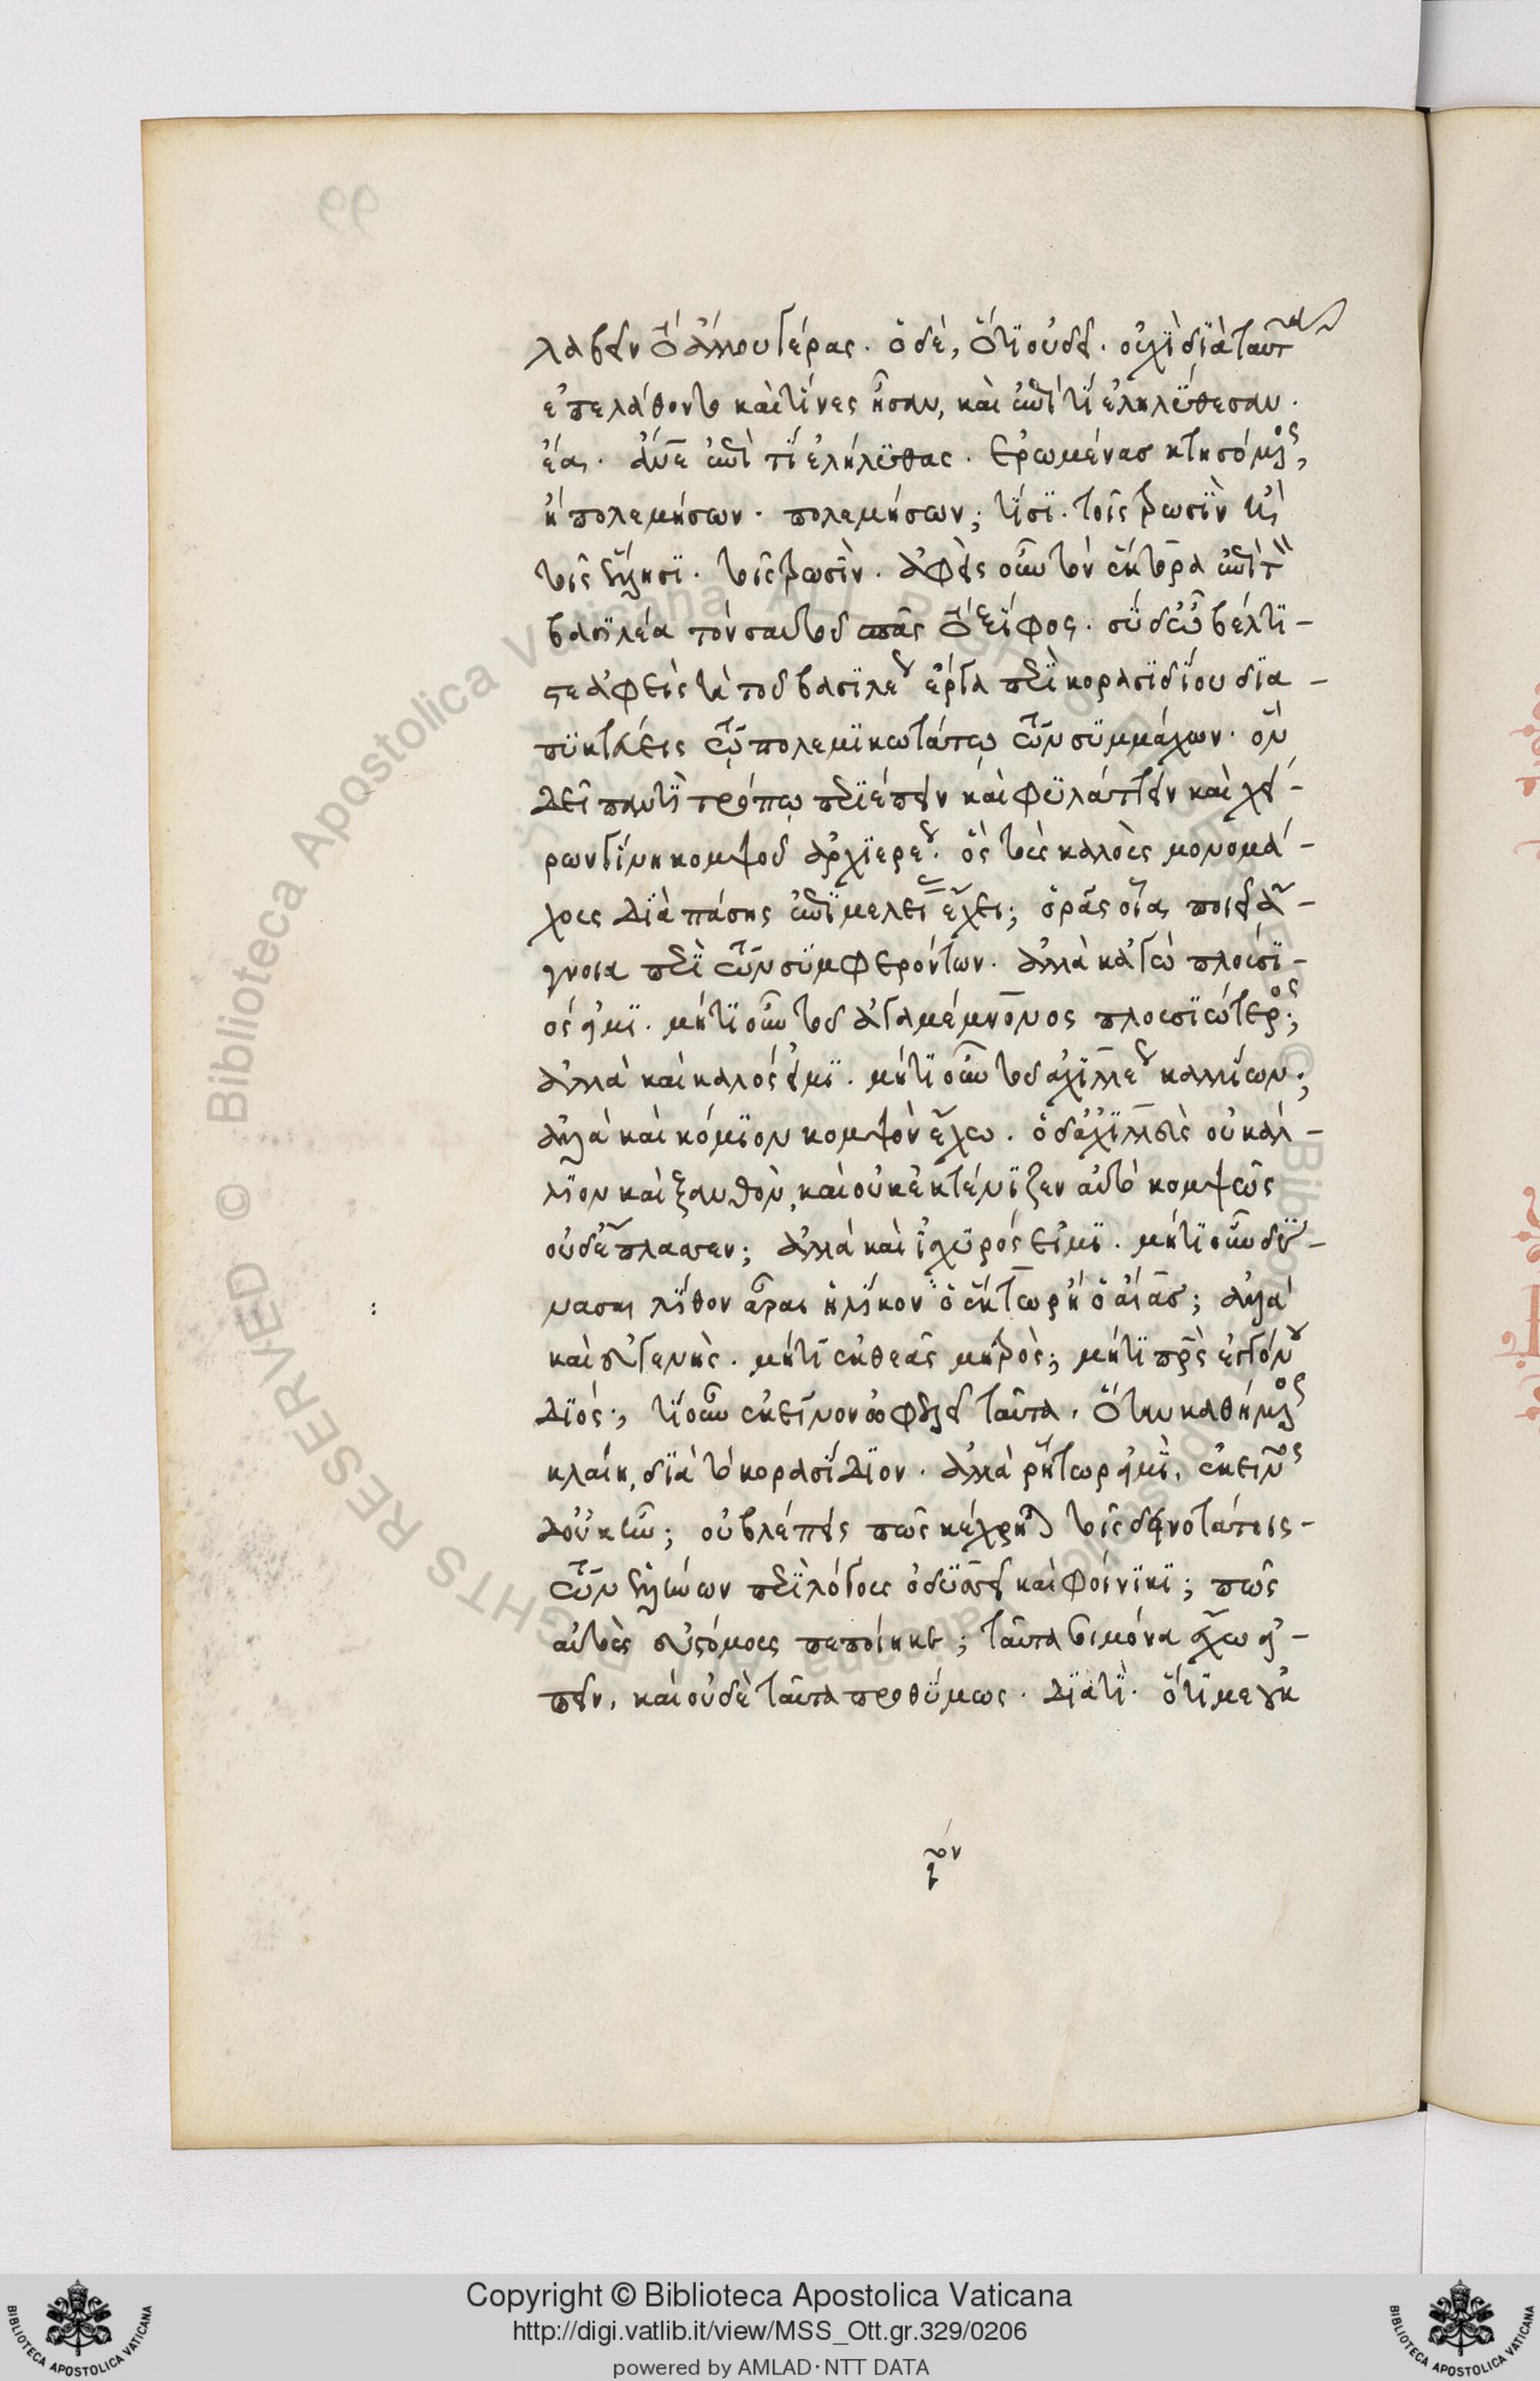 λαβεῖν τὸ ἄλλου γέρας. ὁ δὲ, ὅτι οὐ δεῖ. οὐχὶ διὰ ταῦτα
ἐπελάθοντο καὶ τίνες ἦσαν, καὶ ἐπὶ τί ἐληλύθεσαν.
ἔα. ἄνε ἐπὶ τί ἐλήλυθας. ἐρωμένας κτησόμενος,
ἢ πολεμήσων. πολεμήσων; τίσι. τοῖς τρωσὶν ἢ
τοῖς ἕλλησι. τοῖς τρωσὶν. ἀφεὶς οὖν τὸν ἕκτορα ἐπὶ τὸν
βασιλέα τὸν σαυτοῦ σπᾶς τὸ ξίφος. σὺ δ' ὦ βέλτι-
στε ἀφεὶς τὰ τοῦ βασιλέως ἔργα περὶ κορασιδίου δια-
πυκτεύεις τῷ πολεμικωτάτῳ τῶν συμμάχων. ὃν
δεῖ παντὶ τρόπῳ περιέπειν καὶ φυλάττειν καὶ χεί-
ρων γίνῃ κομψοῦ ἀρχιερέως. ὃς τοὺς καλοὺς μονομά-
χους διὰ πάσης ἐπιμελείας ἔχει; ὁρᾶς οἷα ποιεῖ ἄ-
γνοια περὶ τῶν συμφερόντων. ἀλλὰ κἀγὼ πλούσι-
ός εἰμι. μήτι οὖν τοῦ ἀγαμέμνονος πλουσιώτερος;
ἀλλὰ καὶ καλός εἰμι. μήτι οὖν τοῦ ἀχιλλέως καλλίων;
ἀλλὰ καὶ κόμιον κομψὸν ἔχω. ὁ δ' ἀχιλλεὺς οὐ κάλ-
λιον καὶ ξανθὸν, καὶ οὐκ ἐκτένιζεν αὐτὸ κομψῶς
οὐδ' ἔπλασσεν; ἀλλὰ καὶ ἰσχυρός εἰμι. μήτι οὖν δύ-
νασαι λίθον ἆραι ἡλίκον ὁ ἕκτωρ ἢ ὁ αἴας; ἀλλὰ
καὶ εὐγενὴς. μήτι ἐκ θεᾶς μητρὸς; μήτι πρὸς ἐκγόνου
διός; τί οὖν ἐκεῖνον ὠφελεῖ ταῦτα. ὅταν καθήμενος
κλαίῃ διὰ τὸ κορασίδιον. ἀλλὰ ῥήτωρ εἰμὶ. ἐκεῖνος
δ' οὐκ ἦν; οὐ βλέπεις πῶς κέχρηται τοῖς δεινοτάτοις
τῶν ἑλλήνων περὶ λόγους ὀδυσσεῖ καὶ φοίνικι; πῶς
αὐτοὺς ἀστόμους πεποίηκε; ταῦτά σοι μόνα ἔχω εἰ-
πεῖν, καὶ οὐδὲ ταῦτα προθύμως. διατὶ. ὅτι με οὐκ